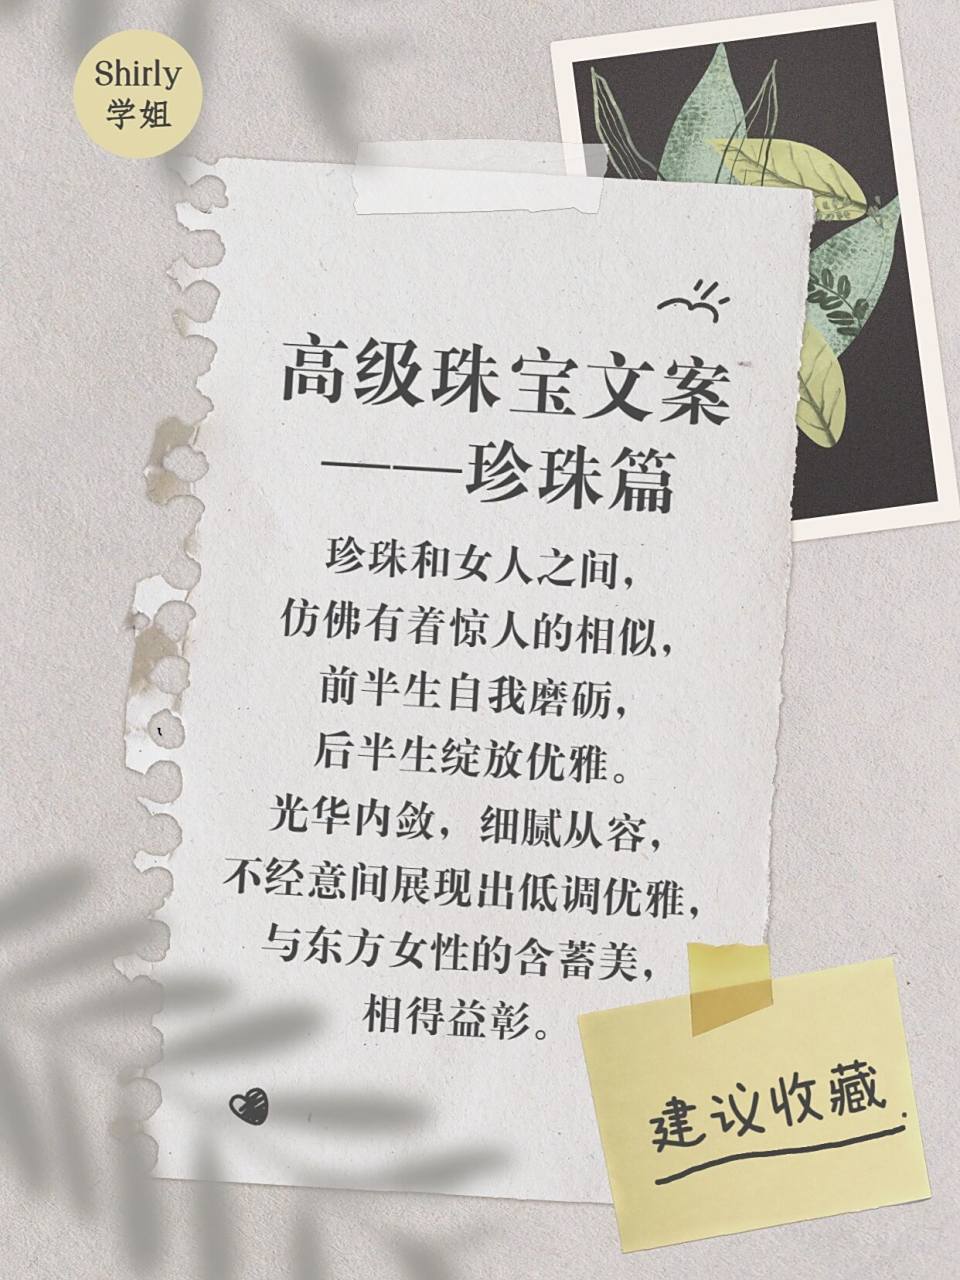 Shirly
学姐
高级珠宝文案
——珍珠篇
珍珠和女人之间，
仿佛有着惊人的相似，
前半生自我磨砺，
后半生绽放优雅。
光华内敛，细腻从容，
不经意间展现出低调优雅，
与东方女性的含蓄美，
相得益彰。
建议收藏.